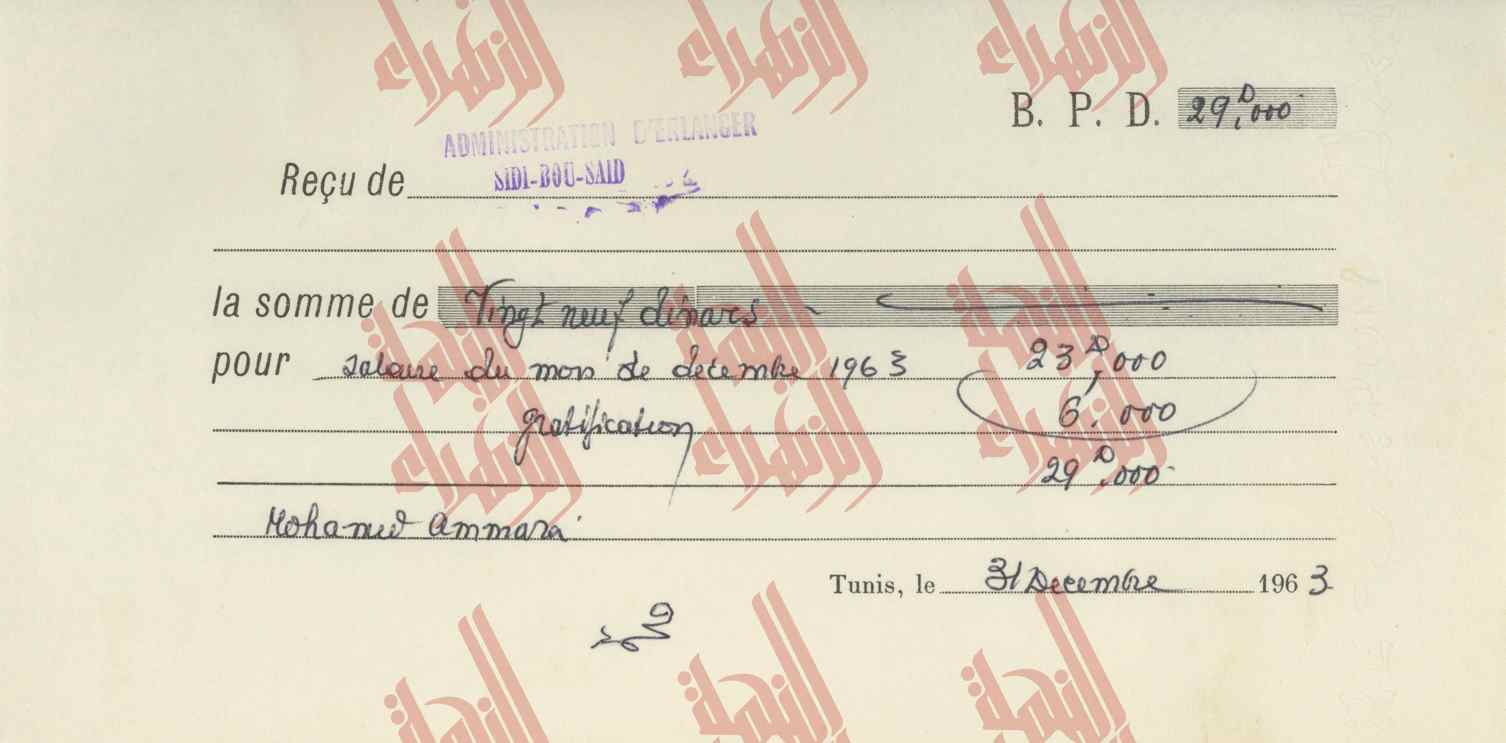 B. P. D. 29D,000
ADMINISTRATION D'ERLANGER
Reçu de SIDI-BOU-SAID
la somme de Vingt neuf dinars
pour salaire du mois de décembre 1963 23D,000
gratification 6,000
29D,000
Mohamed Ammara
Tunis, le 31 Decembre 1963